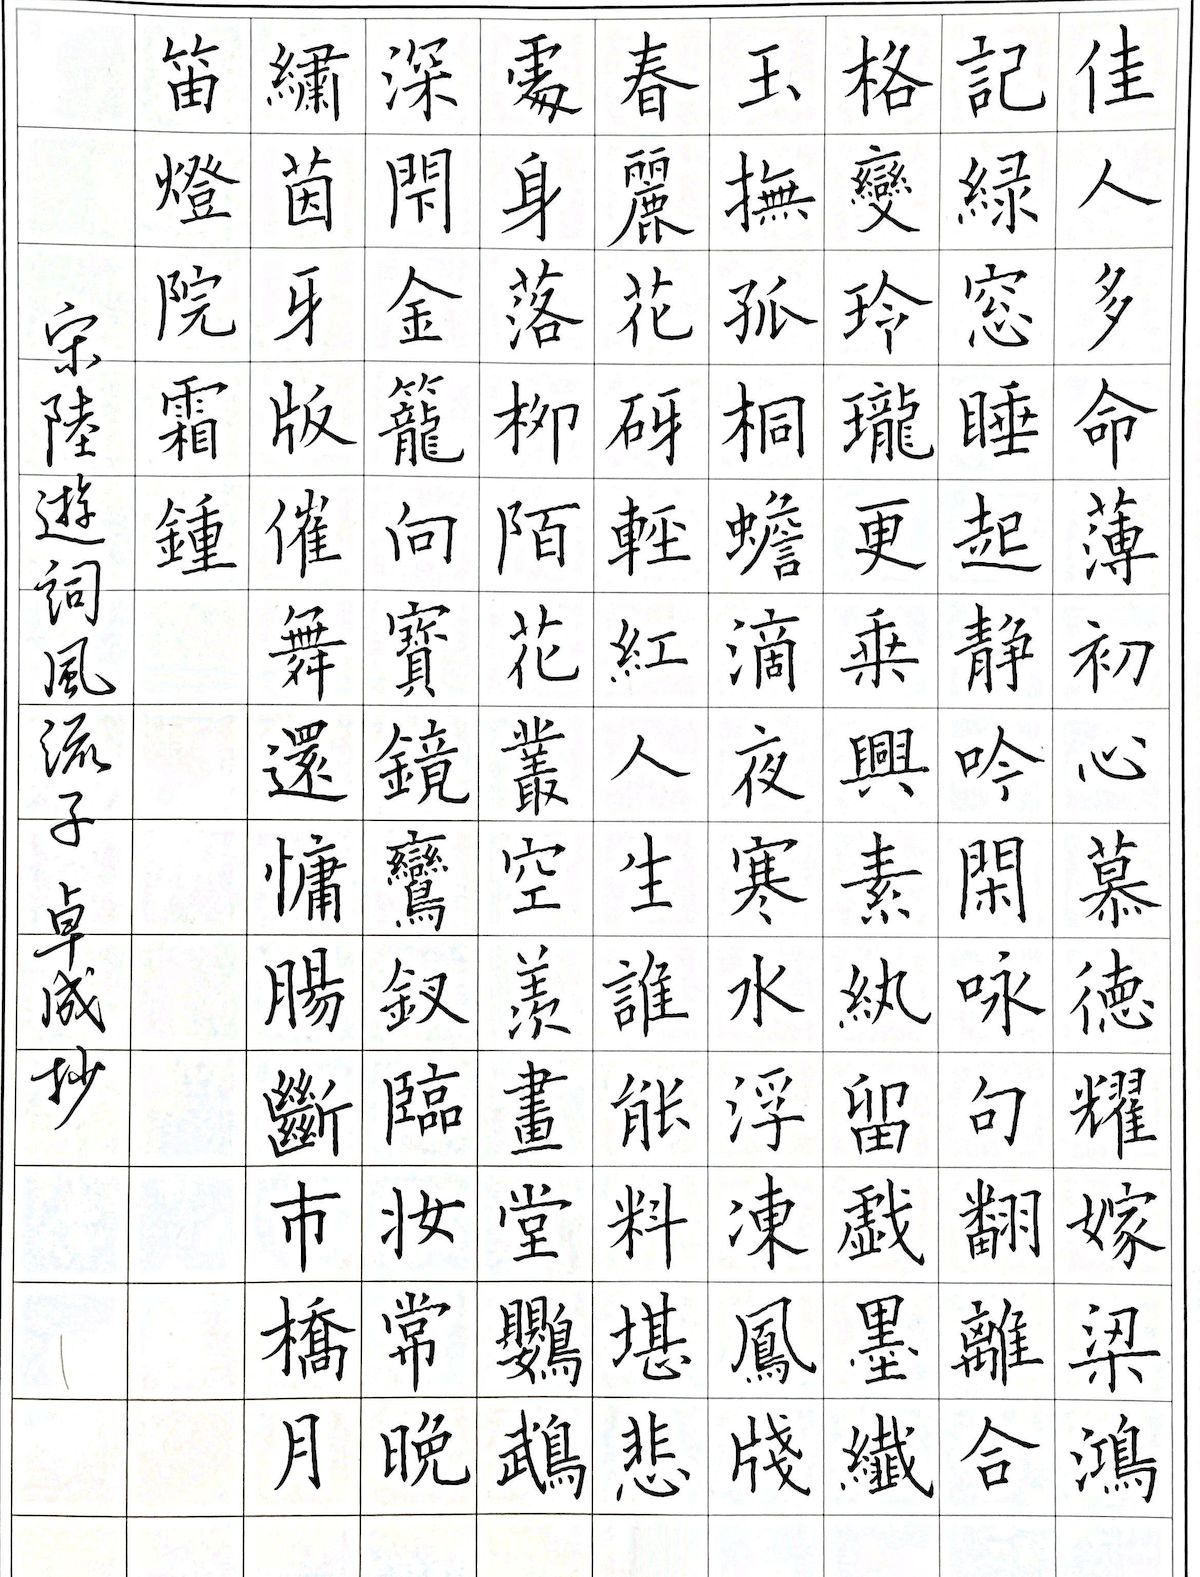 佳人多命薄初心慕德耀嫁梁鴻
記緑窓睡起静吟閑咏句翻離合
格變玲瓏更乗興素紈留戲墨纖
玉撫孤桐蟾滴夜寒水浮凍鳳牋
春麗花砑輕紅人生誰能料堪悲
處身落柳陌花叢空羨畫堂鸚鵡
深閇金籠向寶鏡鸞釵臨妝常晚
繡茵牙版催舞還慵腸斷市橋月
笛燈院霜鍾
宋陸遊詞風流子 卓成抄